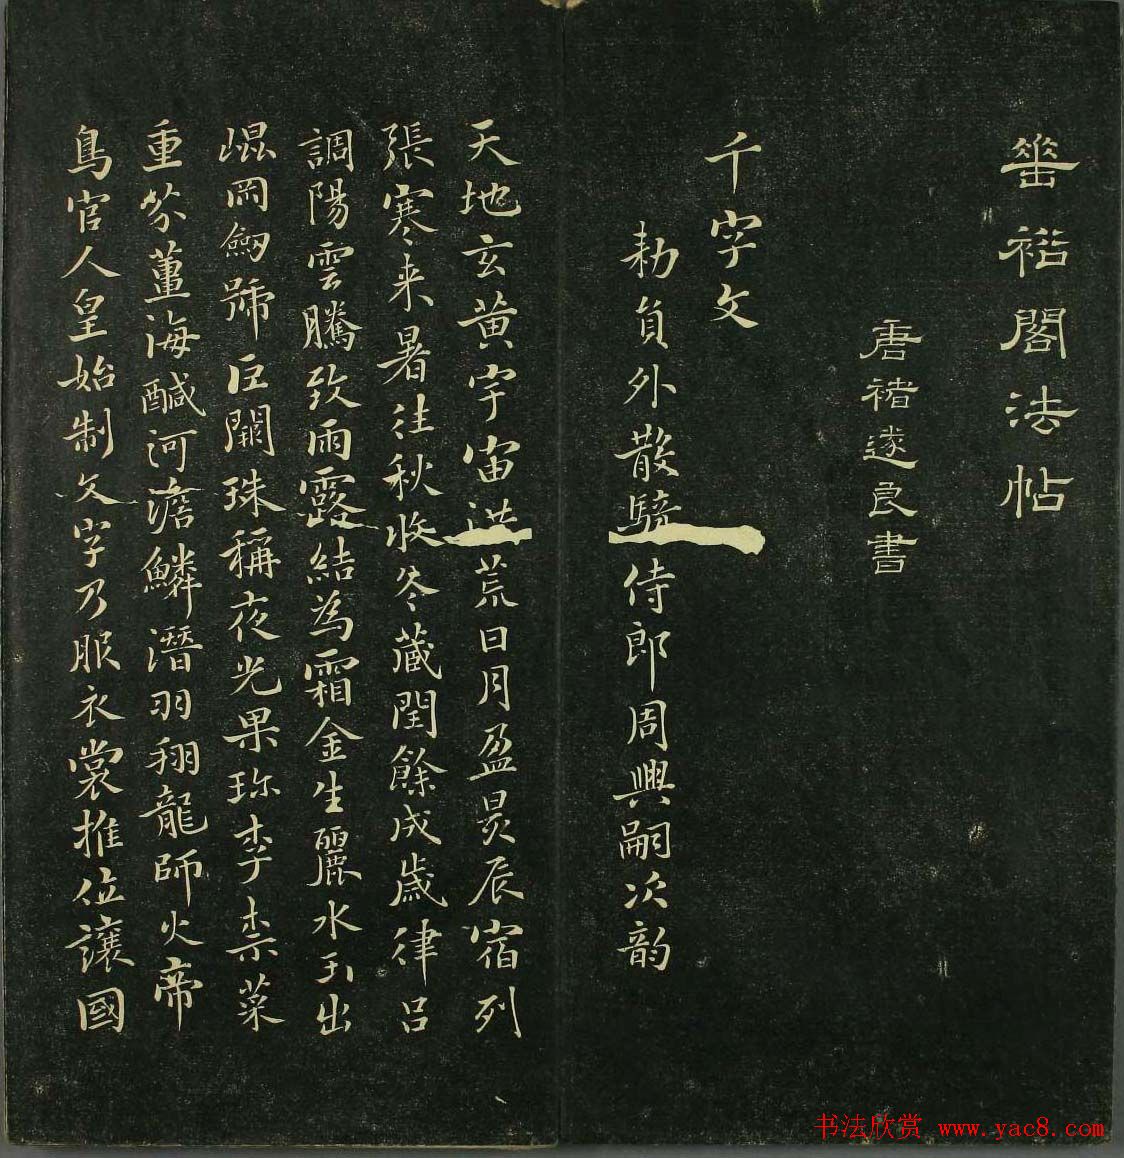 垂裕閣法帖
唐褚遂良書
千字文
勑員外散騎侍郎周興嗣次韵
天地玄黄宇宙洪荒日月盈昃辰宿列
張寒来暑往秋收冬藏閏餘成歲律吕
調陽雲騰致雨露結為霜金生麗水玉出
崐岡劒號巨闕珠稱夜光果珎李柰菜
重芥薑海醎河澹鱗潛羽翔龍師火帝
鳥官人皇始制文字乃服衣裳推位讓國
书法欣赏 www.yac8.com